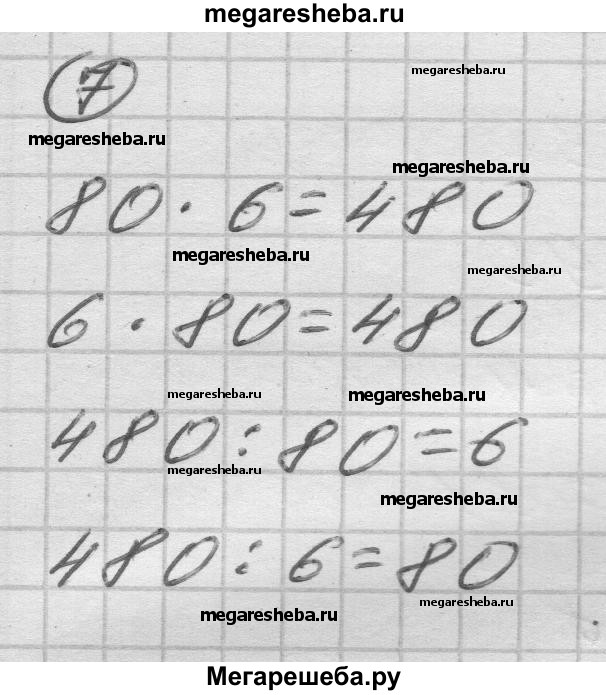 megaresheba.ru
7
megaresheba.ru
megaresheba.ru
megaresheba.ru
80 · 6 = 480
megaresheba.ru
megaresheba.ru
6 · 80 = 480
megaresheba.ru
megaresheba.ru
480 : 80 = 6
megaresheba.ru
megaresheba.ru
480 : 6 = 80
megaresheba.ru
megaresheba.ru
Мегарешеба.ру